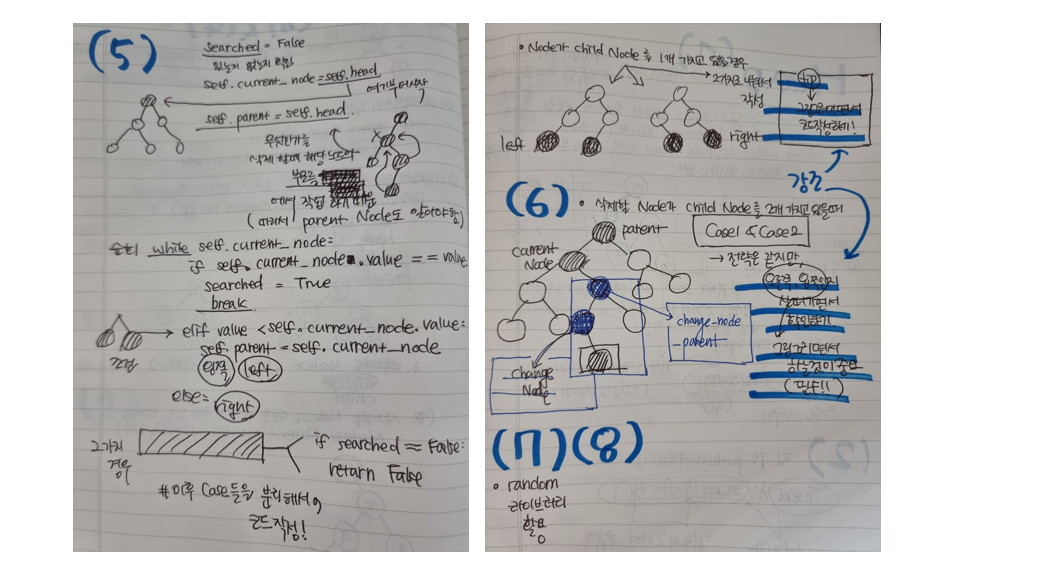 (5)
searched = False
있는지 없는지 확인
self.current_node = self.head
여기부터 시작
self.parent = self.head.
무지반가를
삭제할때 해당 노드의
부모를
에서 작업하기 때문
(따라서 parent Node도 알아야함)
순회 while self.current_node:
if self.current_node.value == value
searched = True
break
elif value < self.current_node.value:
self.parent = self.current_node
왼쪽 left
else: right
2가지
경우
if searched == False:
return False
#이후 Case들을 분리해서,
코드 작성!
• Node가 child Node를 1개 가지고 있을경우
2가지로 나눠서
작성
tip
그림 그리면서
코드작성하기!
left
right
강조
(6) • 삭제할 Node가 child Node를 2개 가지고 있을때
parent
Case1 & Case2
current
Node
→ 전략은 같지만,
오른쪽, 왼쪽인지
살펴가면서
확인하기!
change-node
-parent
그림그리면서
하는것이 중요
(필수!!)
change
Node
(7)(8)
• random
라이브러리
활용